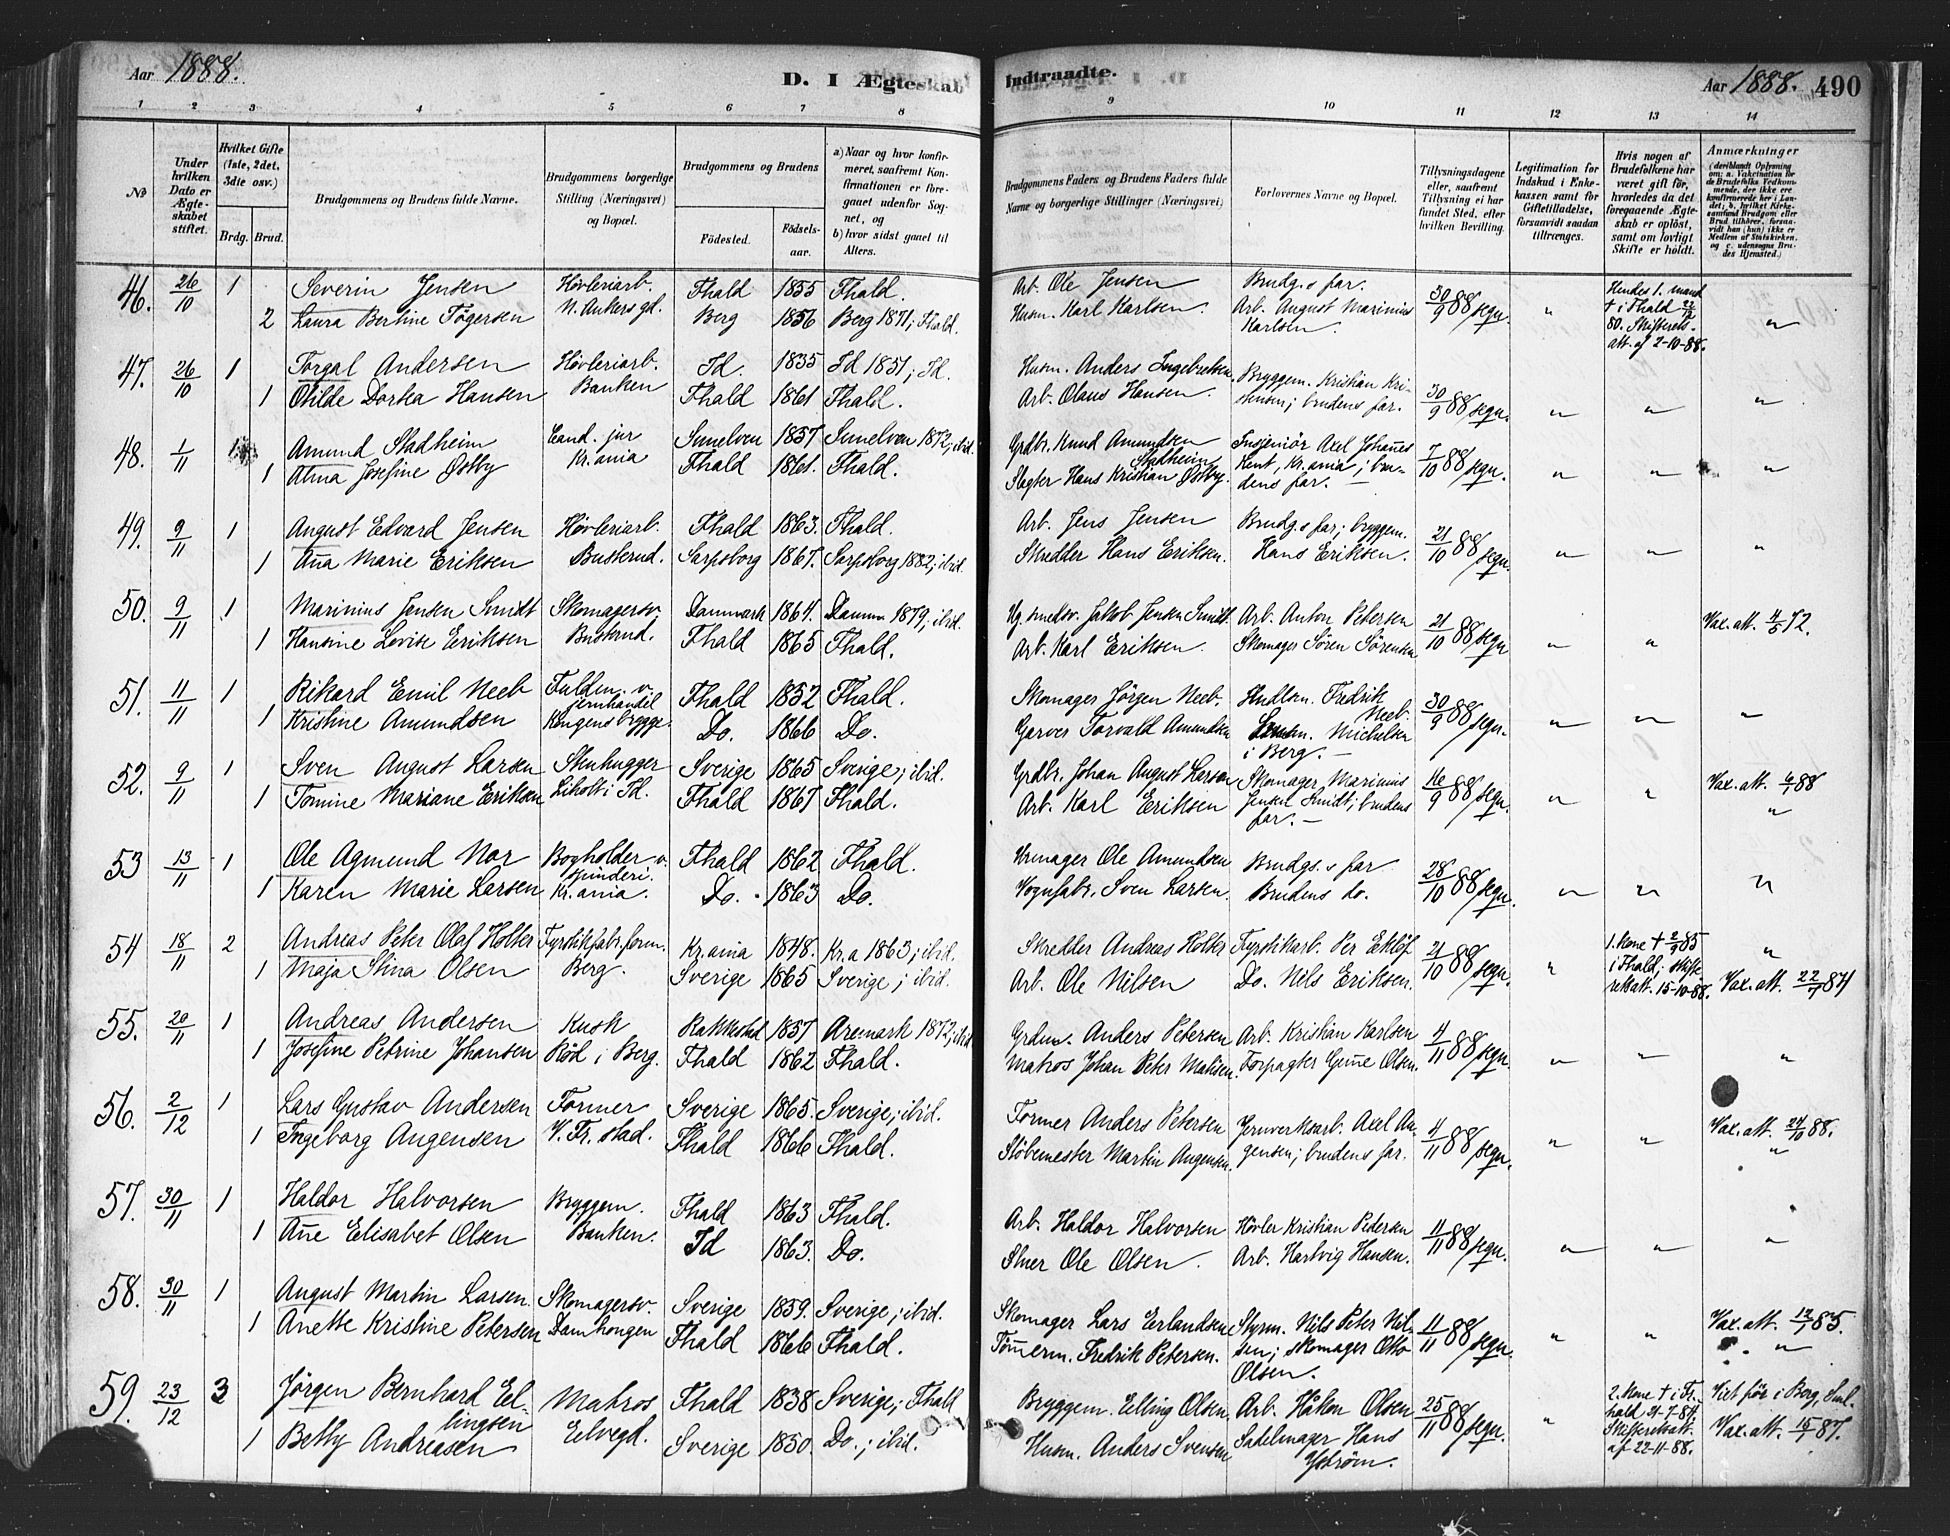 Aar 1888.
D. I Ægteskab Indtraadte.
Aar 1888. 490
1 2 3 4 5 6 7 8 9 10 11 12 13 14
No
Under hvilken Dato er Ægteskabet stiftet.
Hvilket Gifte (1ste, 2det, 3die osv.)
Brdg. Brud.
Brudgommens og Brudens fulde Navne.
Brudgommens borgerlige Stilling (Næringsvei) og Bopæl.
Brudgommens og Brudens
Födested.
Födsels-aar.
a) Naar og hvor konfirmeret, saafremt Konfirmationen er foregaaet udenfor Sognet, og
b) hvor sidst gaaet til Alters.
Brudgommens Faders og Brudens Faders fulde Navne og borgerlige Stillinger (Næringsvei)
Forlovernes Navne og Bopæl.
Tillysningsdagene eller, saafremt Tillysning ei har fundet Sted, efter hvilken Bevilling.
Legitimation for Indskud i Enkekassen samt for Giftetilladelse, forsaavidt saadan tiltrænges.
Hvis nogen af Brudefolkene har været gift før, hvorledes da det foregaaende Ægteskab er opløst, samt om lovligt Skifte er holdt.
Anmærkninger
46. 26/10 1 Severin Jensen Høvleriarb. Fhald 1855 Fhald. Arb. Ole Jensen Brudg.s far. 30/9 88 segn. " Hendes 1. mand
2 Laura Bertine Tøgersen N. Ankers gd. Berg 1856 Berg 1871; Fhald. Husm. Karl Karlsen. Arb. August Marinius Karlsen. † i Fhald 80. Skifterets att. af 2-10-88. "
47. 26/10 1 Torgal Andersen Høvleriarb. Id. 1835 Id 1851; Id. Husm. Anders Ingebretsen Bryggem. Kristian Kri- 30/9 88 segn. " " "
1 Otilde Dortea Hansen Banken Fhald 1861 Fhald. Arb. Olaus Hansen. stensen; brudens far.
48. 1/11 1 Amund Stadheim Cand. jur Sunelven 1857 Sunelven 1872; ibid. Grdbr. Knud Amundsen Stadheim Insjeniör Axel Johañes 7/10 88 segn. " " "
1 Alma Josefine Østby Kr.ania Fhald 1861. Fhald. Slagter Hans Kristian Østby. Kent, Kr.ania; brudens far. —
49. 9/11 1 August Edvard Jensen Høvleriarb. Fhald 1863. Fhald. Arb. Jens Jensen Brudg.s far; bryggem. 21/10 88 segn. " " "
1 Aña Marie Eriksen Busterud. Sarpsborg 1867. Sarpsborg 1882; ibid. Skrædder Hans Eriksen. Hans Eriksen.
50. 9/11 1 Marinius Jensen Smidt Skomagersv. Danmark 1864. Danm. 1879; ibid. Jakob Jensen Smidt. Arb. Anton Petersen 21/10 88 segn " " Vax. att. 4/5 72.
1 Hansine Lovise Eriksen Busterud. Fhald 1865 Fhald. Arb. Karl Eriksen. Skomager Søren Sørensen
51. 11/11 1 Rikard Emil Neeb Fuldm. v. jernhandel Fhald 1852 Fhald. Skomager Jørgen Neeb. Hndlsm. Fredrik Neeb. 30/9 88 segn. " " "
1 Kristine Amundsen Kongens brygge. Do. 1866 Do. Garver Torvald Amundsen Michelsen i Berg. —
52. 9/11 1 Sven August Larsen Stenhugger Sverige 1865 Sverige; ibid. Grdbr. Johan August Larson Skomager Marinius 16/9 88 segn. " " Vax. att. 88
1 Tomine Mariane Eriksen Liholt i Id. Fhald 1867 Fhald. Arb. Karl Eriksen Jensen Smidt; brudens far. — "
53 13/11 1 Ole Agmund Nor Bogholder v. spinderi. Fhald 1862 Fhald. Urmager Ole Amundsen Brudg.s far 28/10 88 segn. " " "
1 Karen Marie Larsen Kr.ania. Do. 1863 Do. Vognfabr. Sven Larsen. Brudens do.
54 18/11 2 Andreas Peter Olaf Holter Fyrstikfabr.form. Kr.ania 1848. Kr.a 1863; ibid. Skredder Andreas Holter Fyrstikarb. Per Eklöf 21/10 88 segn. " 1. kone † 2/9 85 i Fhald; skifteretsatt. 15-10-88. "
1 Maja Stina Olsen Berg. Sverige 1865 Sverige; ibid. Arb. Ole Nilsen Do. Nils Eriksen. Vax. att. 84
55. 20/11 1 Andreas Andersen Kusk Rakkestad 1857 Aremark 1872; ibid Grdm. Anders Petersen Arb. Kristian Karlsen 4/11 88 segn. " " "
1 Josefine Petrine Johansen Röd i Berg. Fhald 1862 Fhald. Matros Johan Peter Forpagter Guñe Olsen.
56. 2/12 1 Lars Gustav Andersen Former Sverige 1865. Sverige; ibid. Former Anders Petersen Jernverksarb. Axel Au- 4/11 88 segn. " " Vax. att. 24/10 88.
1 Ingeborg Augensen V. Fr. stad. Fhald 1866 Fhald. Støbemester Martin Augensen. gensen; brudens far. "
57. 30/11 1 Haldor Halvorsen Bryggem. Fhald 1863 Fhald. Arb. Haldor Halvorsen Høvler Kristian Pedersen 11/11 88 segn. " " "
1 Añe Elisabet Olsen Banken. Id 1863. Do. Ole Olsen. Arb. Hartvig Hansen. "
58. 30/11 1 August Martin Larsen. Skomagersv. Sverige 1859. Sverige; ibid. Skomager Lars Erlandsen Styrm. Nils Peter Nil- 11/11 88 segn. " " Vax. att. 85.
1 Anette Kristine Petersen Damhougen Fhald 1866 Fhald. Tömerm. Fredrik Petersen. sen; skomager Otto Olsen. "
59. 23/12 3 Jørgen Bernhard El- lingsen Matros Fhald 1838 Sverige; Fhald Bryggem. Elling Olsen. Arb. Håkon Olsen 25/11 88 segn. " 2. kone † i Fr.hald 84. Skifteretsatt. af 22-11-88. Viet før i Berg,
1 Betty Andreasen Elvegd. Sverige 1850. Do.; ibid. Husm. Anders Svensen Sadelmager Hans Yström. Vax. att. 87.